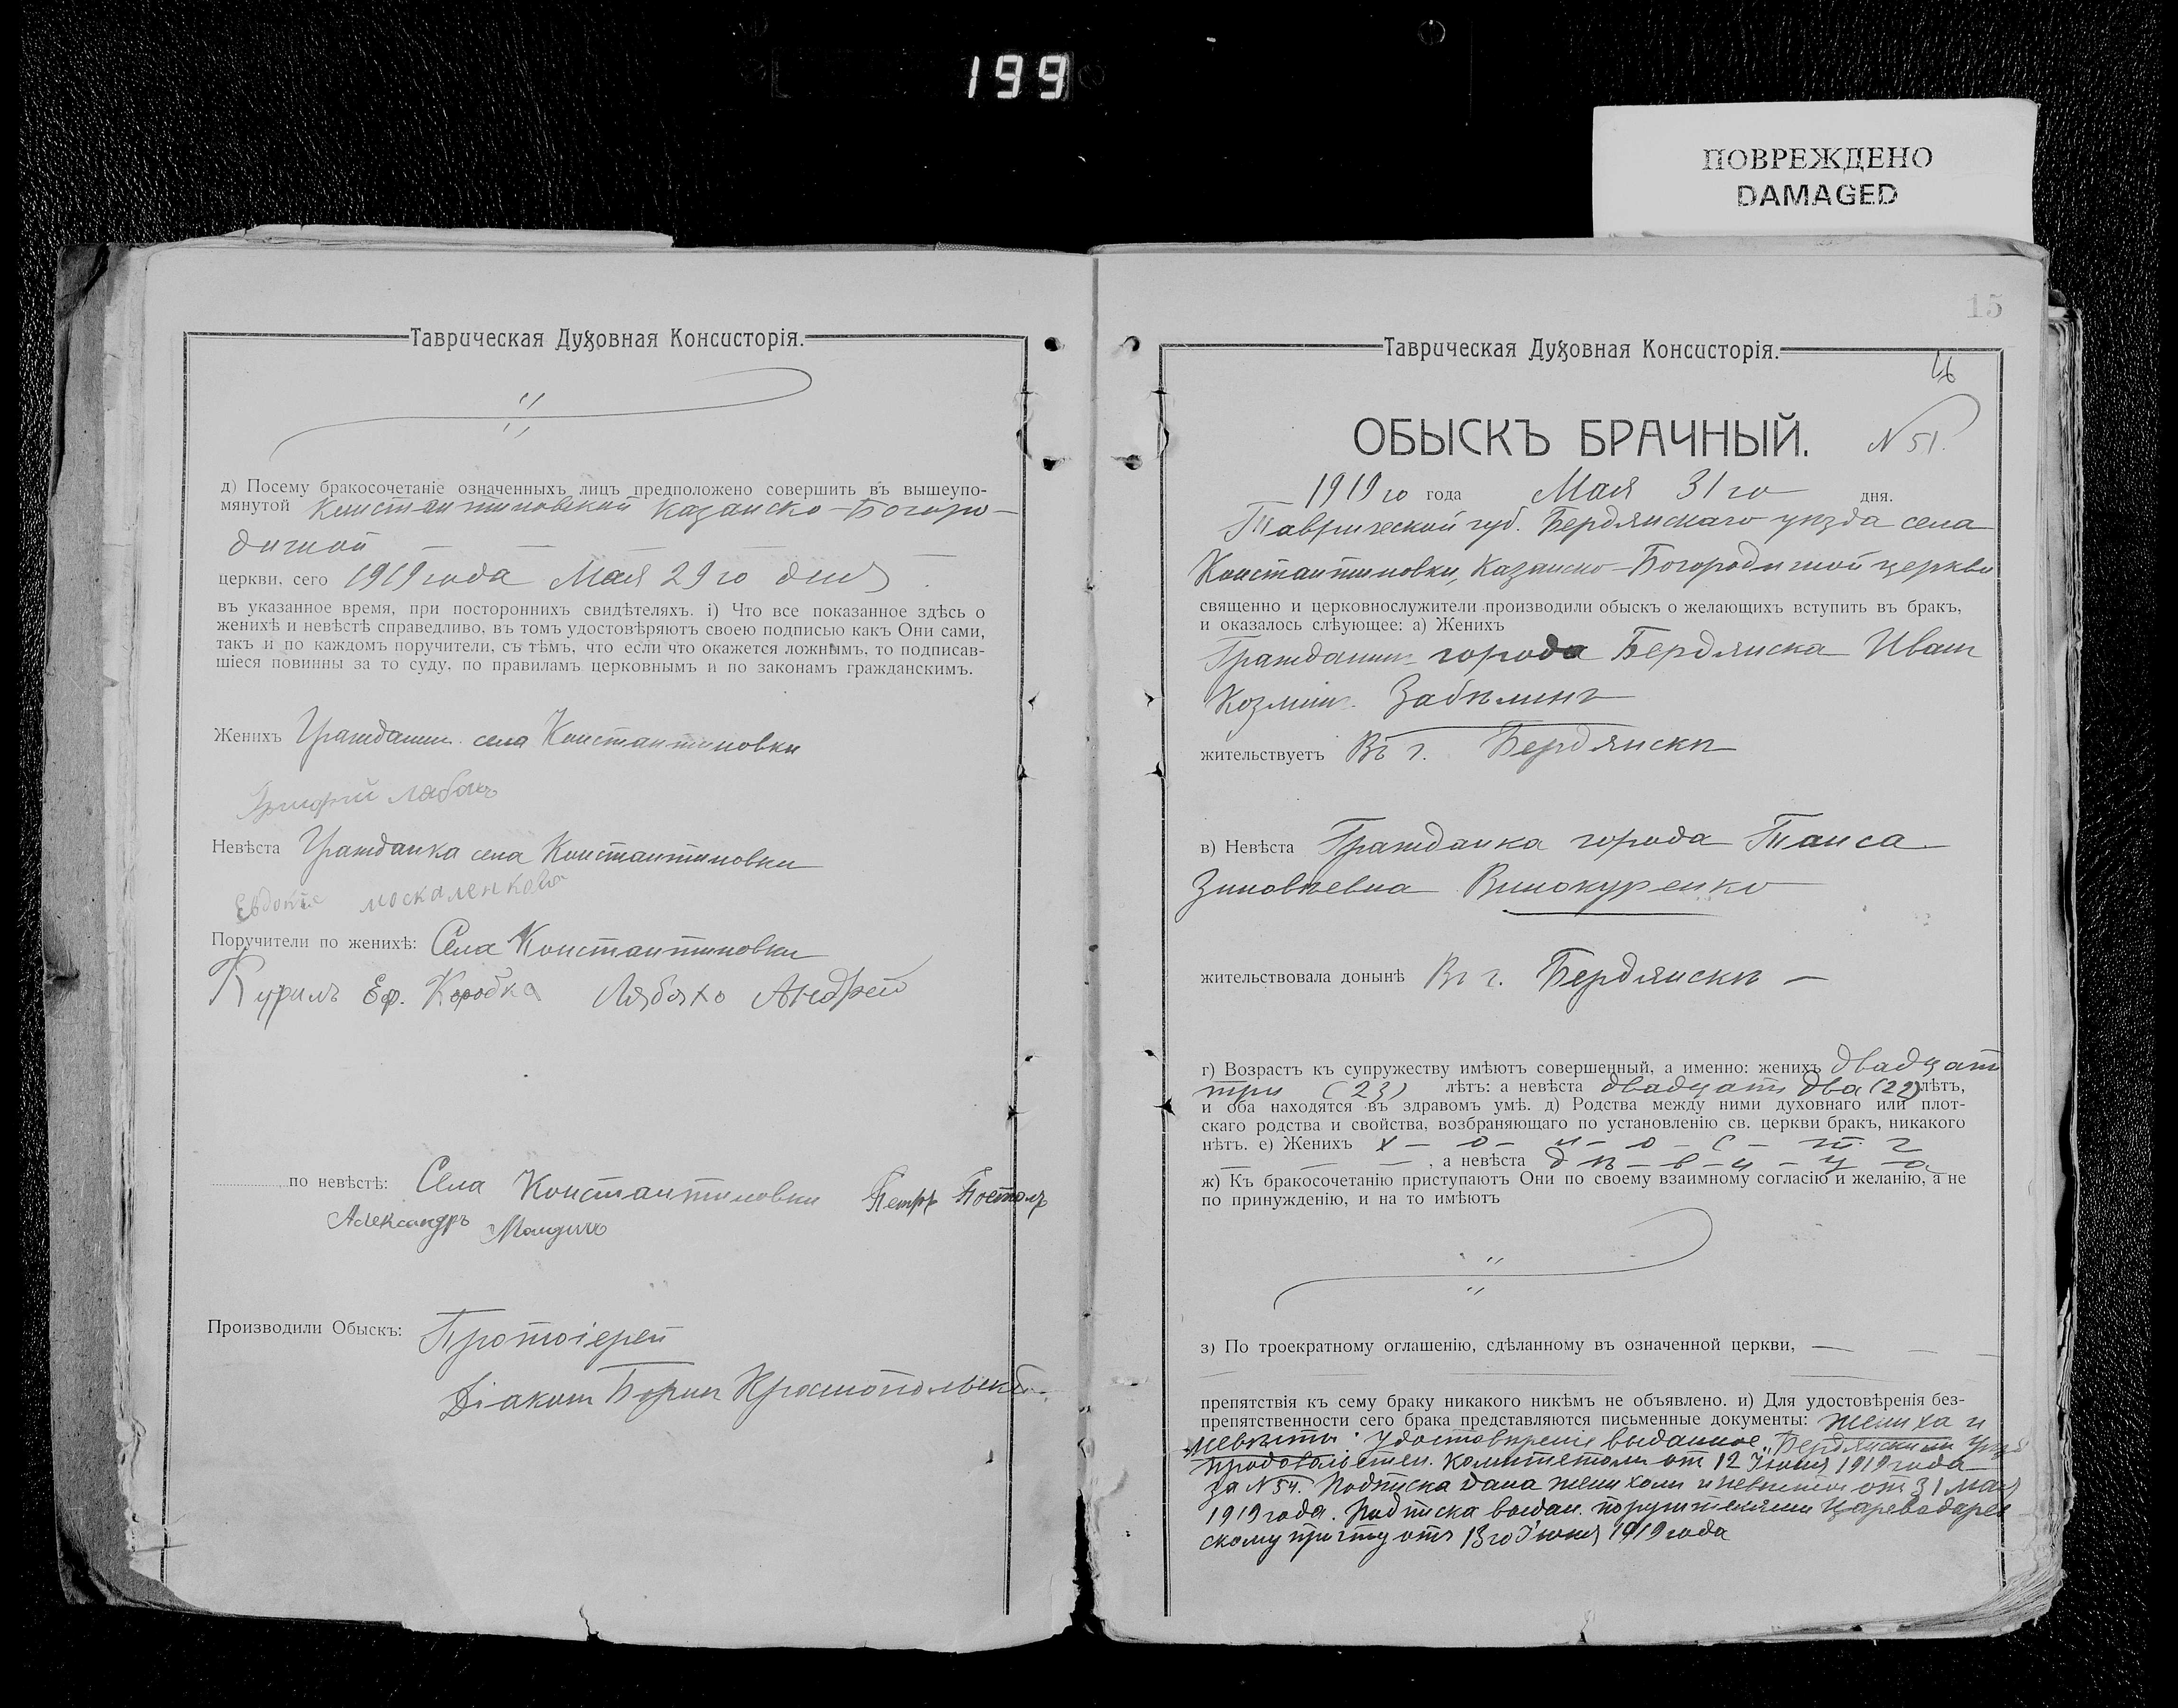 199
ПОВРЕЖДЕНО
DAMAGED
Таврическая Духовная Консисторія.
д) Посему бракосочетаніе означенныхъ лицъ предположено совершить въ вышеупо-
мянутой Константиновской Казанско-Богоро-
дичной
церкви, сего 1919 года Мая 29 го дня
въ указанное время, при постороннихъ свидѣтеляхъ. і) Что все показанное здѣсь о
женихѣ и невѣстѣ справедливо, въ томъ удостовѣряютъ своею подписью какъ Они сами,
такъ и по каждомъ поручители, съ тѣмъ, что если что окажется ложнымъ, то подписав-
шіеся повинны за то суду, по правиламъ церковнымъ и по законамъ гражданскимъ.
Женихъ Гражданин села Константиновки
Григорій
Невѣста Гражданка села Константиновки
Евдокіе москаленкова
Поручители по женихѣ: Села Константиновки
Курилъ Еф. Коробка Лябахо Андрей
по невѣстѣ: Села Константиновки Петръ Постолъ
Александръ
Производили Обыскъ: Протоіерей
Діакон Борис
15
Таврическая Духовная Консисторія.
ОБЫСКЪ БРАЧНЫЙ. N 51.
1919 го года Мая 31 го дня.
Таврической губ. Бердянскаго уѣзда села
Константиновки, Казанско-Богородичной церкви
священно и церковнослужители производили обыскъ о желающихъ вступить въ бракъ,
и оказалось слѣующее: а) Женихъ
Гражданин города Бердянска Иван
Козмин. Забѣлинъ
жительствуетъ Въ г. Бердянскѣ
в) Невѣста Гражданка города Таиса
Зиновьевна Винокуренко
жительствовала донынѣ Въ г. Бердянскѣ —
г) Возрастъ къ супружеству имѣютъ совершенный, а именно: женихъ двадцат
три (23) лѣтъ: а невѣста двадцать два (22) лѣтъ,
и оба находятся въ здравомъ умѣ. д) Родства между ними духовнаго или плот-
скаго родства и свойства, возбраняющаго по установленію св. церкви бракъ, никакого
нѣтъ. е) Женихъ х — о — л — о — с — т — г
, а невѣста д — ѣ — в — и — ц — а
ж) Къ бракосочетанію приступаютъ Они по своему взаимному согласію и желанію, а не
по принужденію, и на то имѣютъ
з) По троекратному оглашенію, сдѣланному въ означенной церкви, —
препятствія къ сему браку никакого никѣмъ не объявлено. и) Для удостовѣренія без-
препятственности сего брака представляются письменные документы: жениха и
невѣсты: удостовѣреніе выданное Бердянским
продовольствен. комитетом от 12 Іюня 1919 года
за N 54. Подписка дана женихом и невѣстой от 31 мая
1919 года. Подписка выдан. поручителями Цареводаров
скому причту отъ 13 го Іюня 1919 года